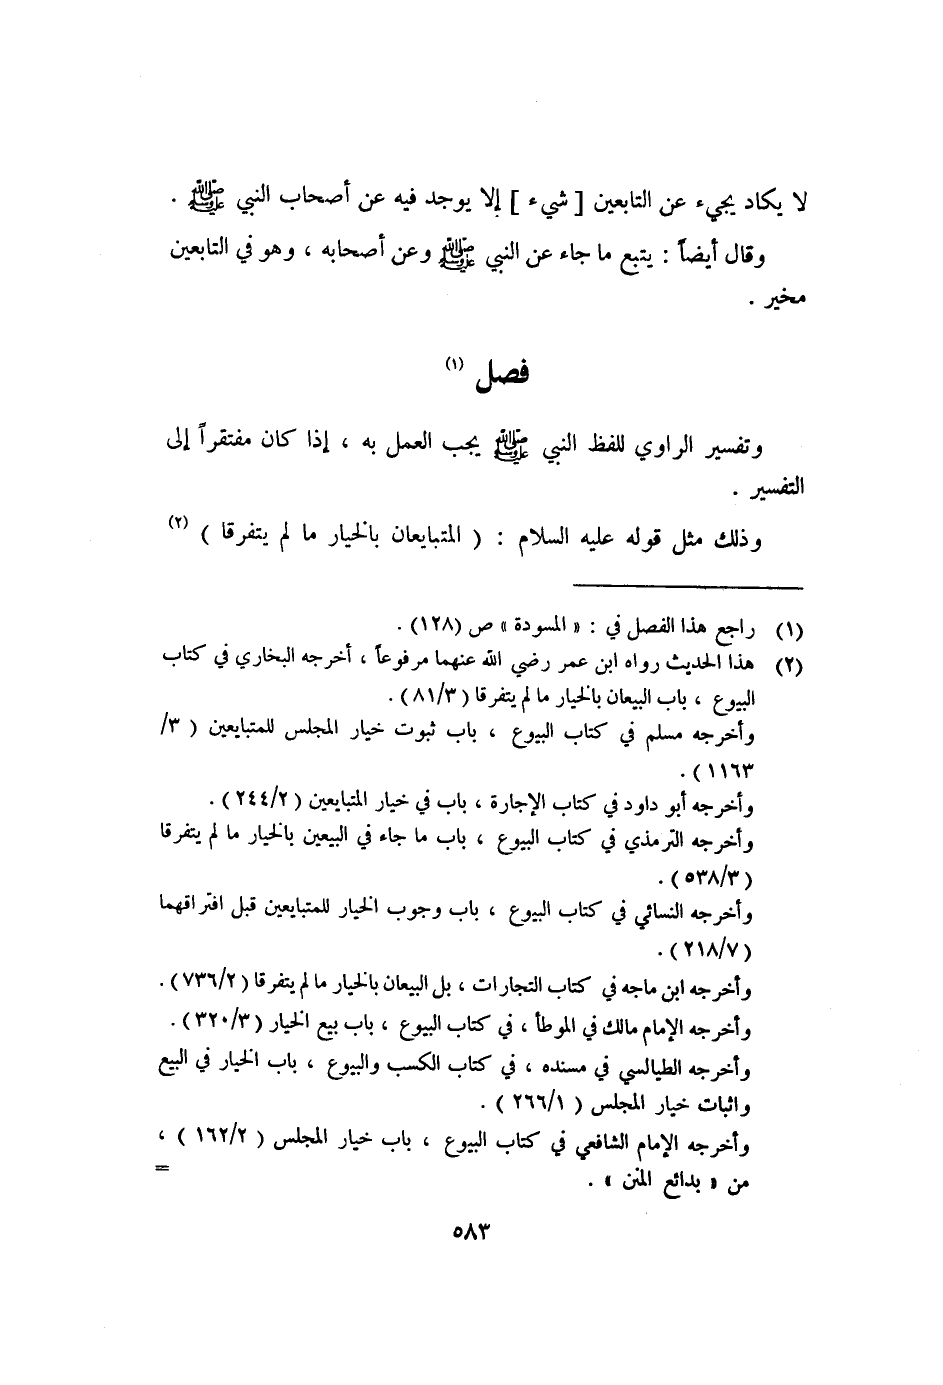 لا يكاد يجيء عن التابعين [ شيء ] إلا يوجد فيه عن أصحاب النبي ﷺ .
وقال أيضاً : يتبع ما جاء عن النبي ﷺ وعن أصحابه ، وهو في التابعين
مخير .
فصل (١)
وتفسير الراوي للفظ النبي ﷺ يجب العمل به ، إذا كان مفتقراً إلى
التفسير .
وذلك مثل قوله عليه السلام : ( المتبايعان بالخيار ما لم يتفرقا ) (٢)
(١) راجع هذا الفصل في : « المسودة » ص (١٢٨) .
(٢) هذا الحديث رواه ابن عمر رضي الله عنهما مرفوعاً ، أخرجه البخاري في كتاب
البيوع ، باب البيعان بالخيار ما لم يتفرقا ( ٨١/٣ ) .
وأخرجه مسلم في كتاب البيوع ، باب ثبوت خيار المجلس للمتبايعين ( ٣/
١١٦٣ ) .
وأخرجه أبو داود في كتاب الإجارة ، باب في خيار المتبايعين ( ٢٤٤/٢ ) .
وأخرجه الترمذي في كتاب البيوع ، باب ما جاء في البيعين بالخيار ما لم يتفرقا
( ٥٣٨/٣ ) .
وأخرجه النسائي في كتاب البيوع ، باب وجوب الخيار للمتبايعين قبل افتراقهما
( ٢١٨/٧ ) .
وأخرجه ابن ماجه في كتاب التجارات ، بل البيعان بالخيار ما لم يتفرقا ( ٧٣٦/٢ ) .
وأخرجه الإمام مالك في الموطأ ، في كتاب البيوع ، باب بيع الخيار ( ٣٢٠/٣ ) .
وأخرجه الطيالسي في مسنده ، في كتاب الكسب والبيوع ، باب الخيار في البيع
واثبات خيار المجلس ( ٢٦٦/١ ) .
وأخرجه الإمام الشافعي في كتاب البيوع ، باب خيار المجلس ( ١٦٢/٢ ) ،
من « بدائع المنن » . =
٥٨٣